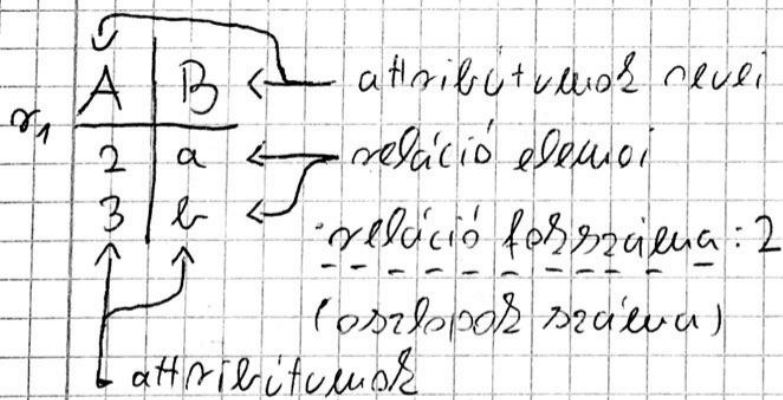 A B attribútumok nevei
r₁
2 a reláció elemei
3 b
reláció fokszáma: 2
(oszlopok száma)
attribútumok